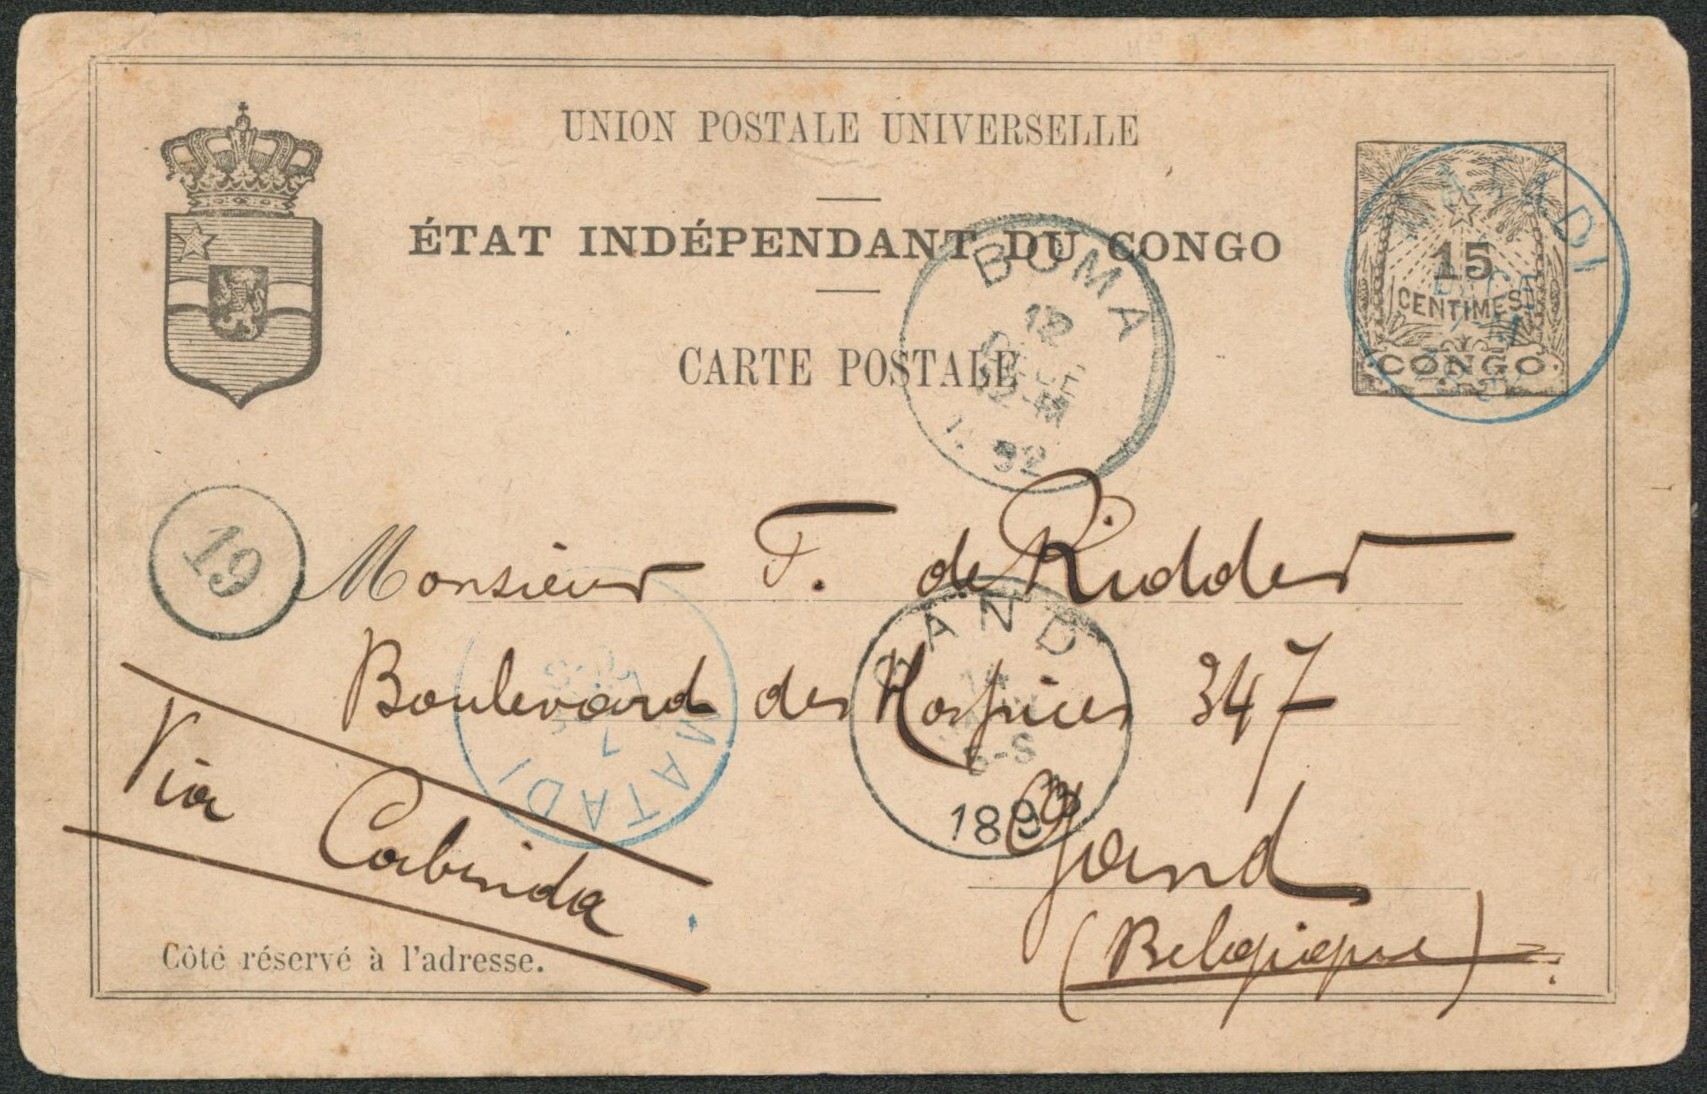 UNION POSTALE UNIVERSELLE
ÉTAT INDÉPENDANT DU CONGO
CARTE POSTALE
15
CENTIMES
CONGO
BOMA
12
92
19
Monsieur F. de Ridder
Boulevard des Hospices 347
Gand
(Belgique)
Via
Cabinda
MATADI
7
GAND
6-S
189
Côté réservé à l'adresse.